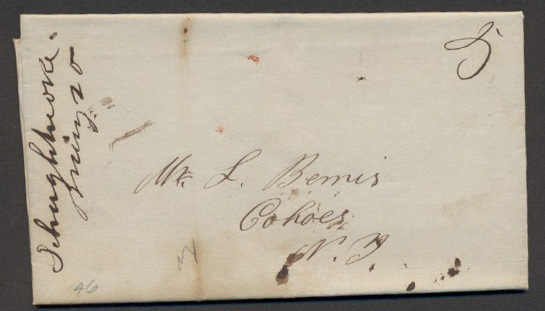 Schaghticoke.
20
5
Mr. L. Bemis
Cohoes
N. Y
46